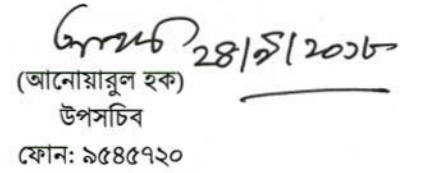 ২৪/৯/২০১৮
(আনোয়ারুল হক)
উপসচিব
ফোন: ৯৫৪৫৭২০